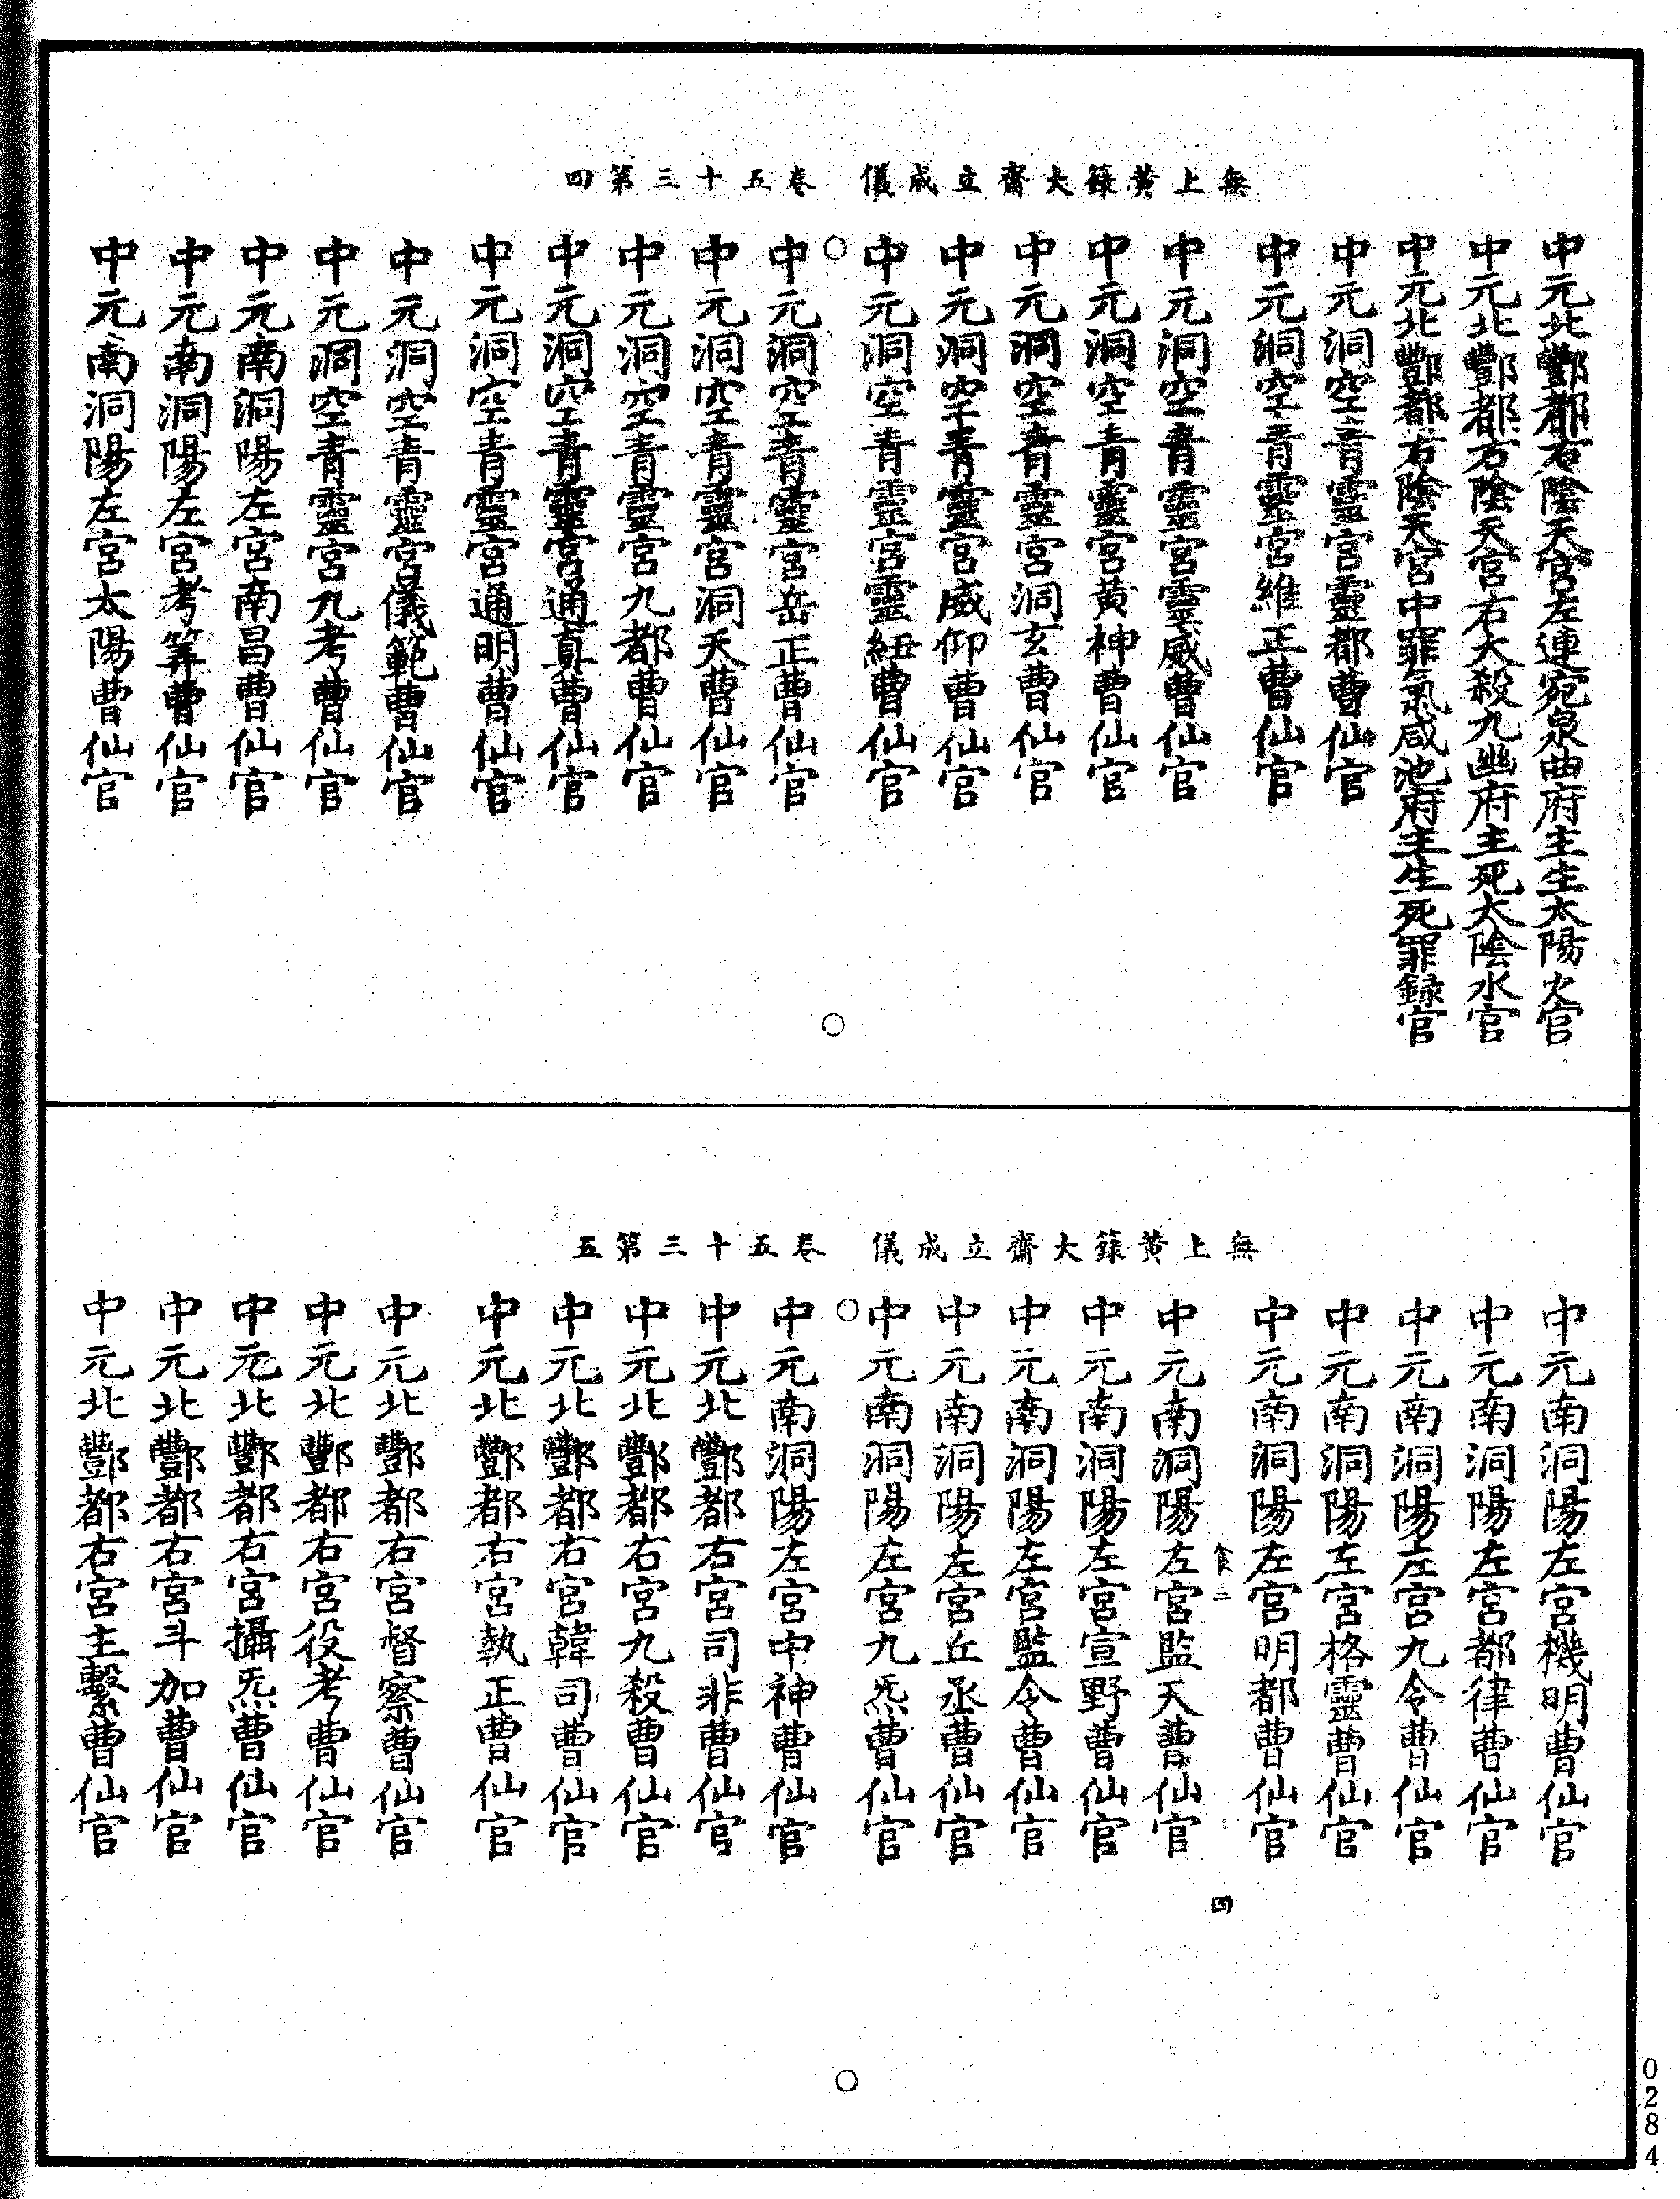 無上黃籙大齋立成儀 卷五十三第四
中元北酆都右陰天宮左連宛泉曲府主生太陽火官
中元北酆都右陰天宮右大殺九幽府主死太陰水官
中元北酆都右陰天宮中罪氣咸池府主生死罪録官
中元洞空青靈宮靈都曹仙官
中元洞空青靈宮維正曹仙官
中元洞空青靈宮靈威曹仙官
中元洞空青靈宮黄神曹仙官
中元洞空青靈宮洞玄曹仙官
中元洞空青靈宮威仰曹仙官
中元洞空青靈宮靈紐曹仙官
中元洞空青靈宮岳正曹仙官
中元洞空青靈宮洞天曹仙官
中元洞空青靈宮九都曹仙官
中元洞空青靈宮通真曹仙官
中元洞空青靈宮通明曹仙官
中元洞空青靈宮儀範曹仙官
中元洞空青靈宮九考曹仙官
中元南洞陽左宮南昌曹仙官
中元南洞陽左宮考筭曹仙官
中元南洞陽左宮太陽曹仙官
無上黃籙大齋立成儀 卷五十三第五
中元南洞陽左宮機明曹仙官
中元南洞陽左宮都律曹仙官
中元南洞陽左宮九令曹仙官
中元南洞陽左宮格靈曹仙官
中元南洞陽左宮明都曹仙官
三
四
中元南洞陽左宮監天曹仙官
中元南洞陽左宮宣野曹仙官
中元南洞陽左宮監令曹仙官
中元南洞陽左宮丘丞曹仙官
中元南洞陽左宮九炁曹仙官
中元南洞陽左宮中神曹仙官
中元北酆都右宮司非曹仙官
中元北酆都右宮九殺曹仙官
中元北酆都右宮韓司曹仙官
中元北酆都右宮執正曹仙官
中元北酆都右宮督察曹仙官
中元北酆都右宮役考曹仙官
中元北酆都右宮攝炁曹仙官
中元北酆都右宮斗加曹仙官
中元北酆都右宮主繫曹仙官
0284